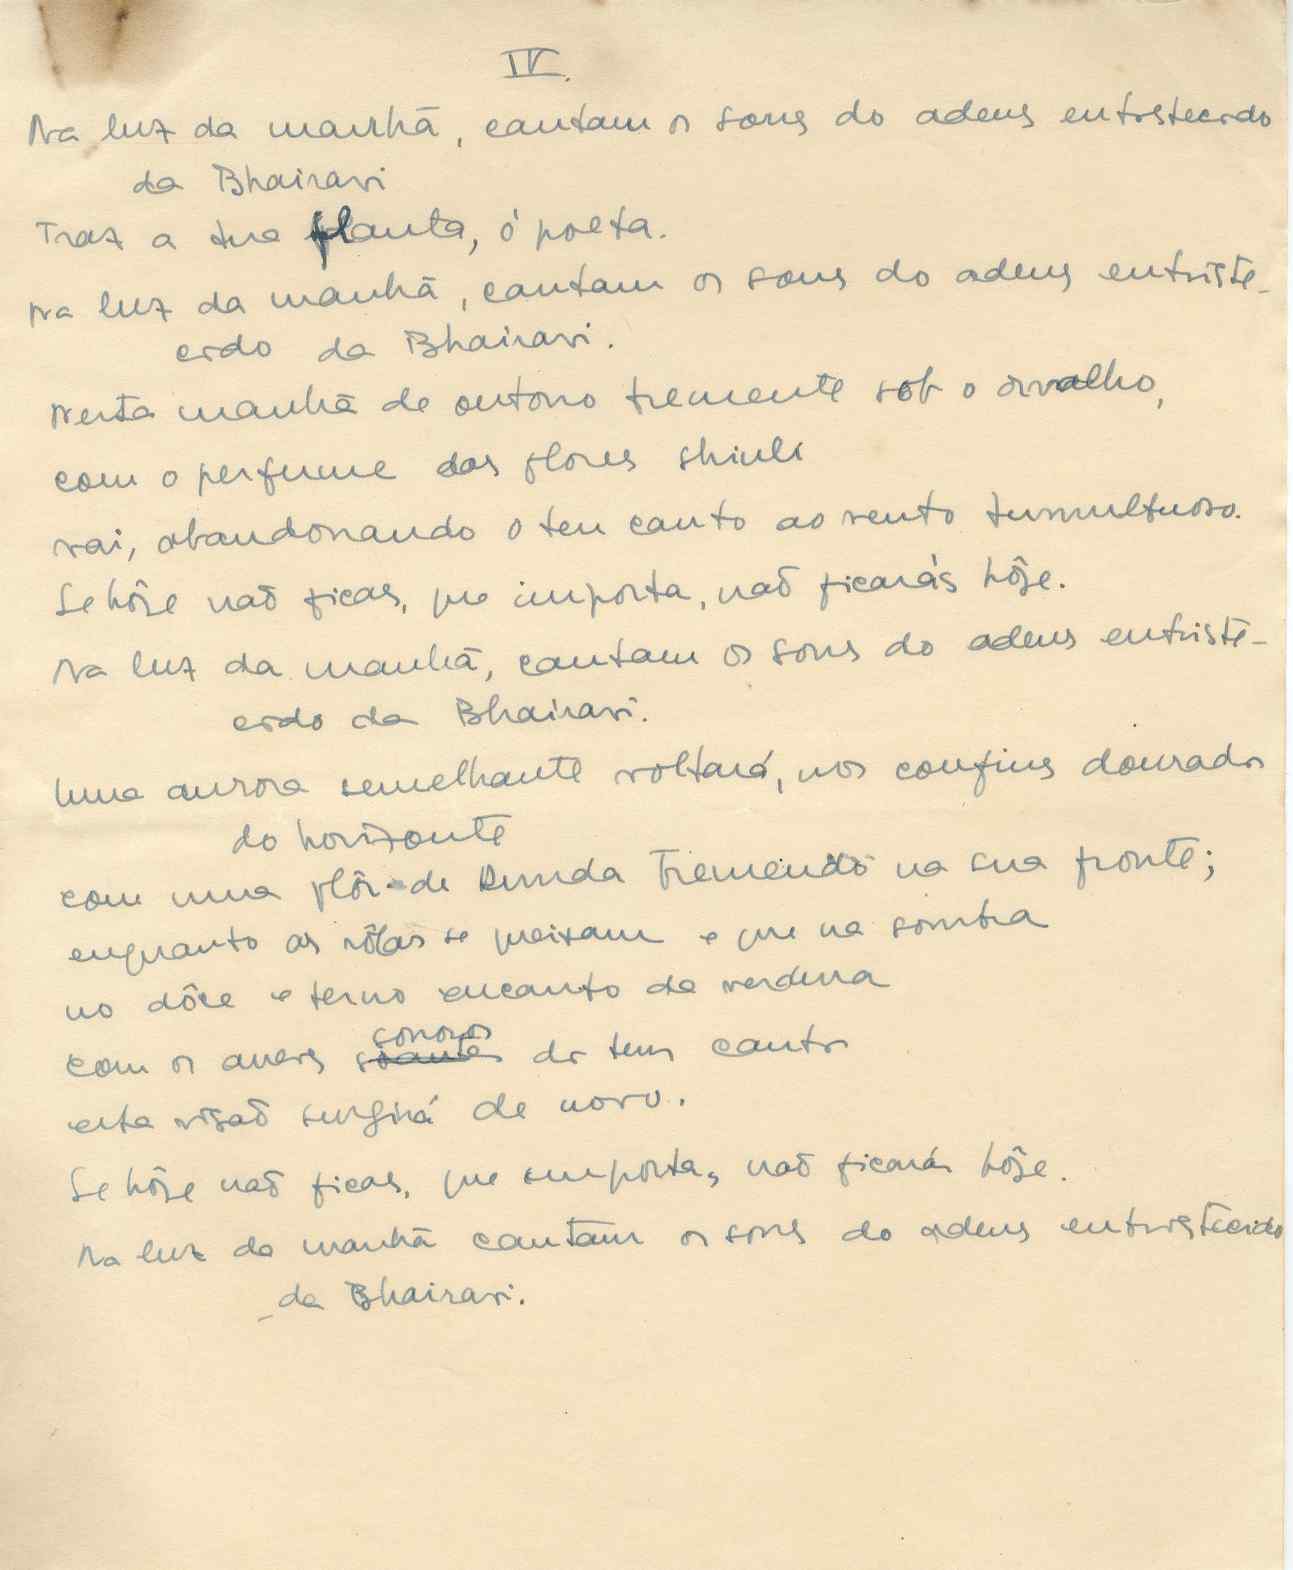 IV.
Na luz da manhã, cantam os sons do adeus entristecido
da Bhairavi
Traz a tua flauta, ó poeta.
Na luz da manhã, cantam os sons do adeus entriste-
cido da Bhairavi.
Nesta manhã de outono tremente sob o orvalho,
com o perfume das flores shiuli
vai, abandonando o teu canto ao vento tumultuoso.
Se hôje naõ ficas, que importa, naõ ficarás hôje.
Na luz da manhã, cantam os sons do adeus entriste-
cido da Bhairavi.
Uma aurora semelhante voltará, nos confins dourados
do horizonte
com uma flôr de Kunda tremendo na sua fronte;
enquanto as rôlas se queixam e que na sombra
no dôce e terno encanto da verdura
com os ares sonoros do teu canto
esta visaõ surgirá de novo.
Se hôje naõ ficas, que importa, naõ ficarás hôje.
Na luz da manhã cantam os sons do adeus entristecido
da Bhairavi.